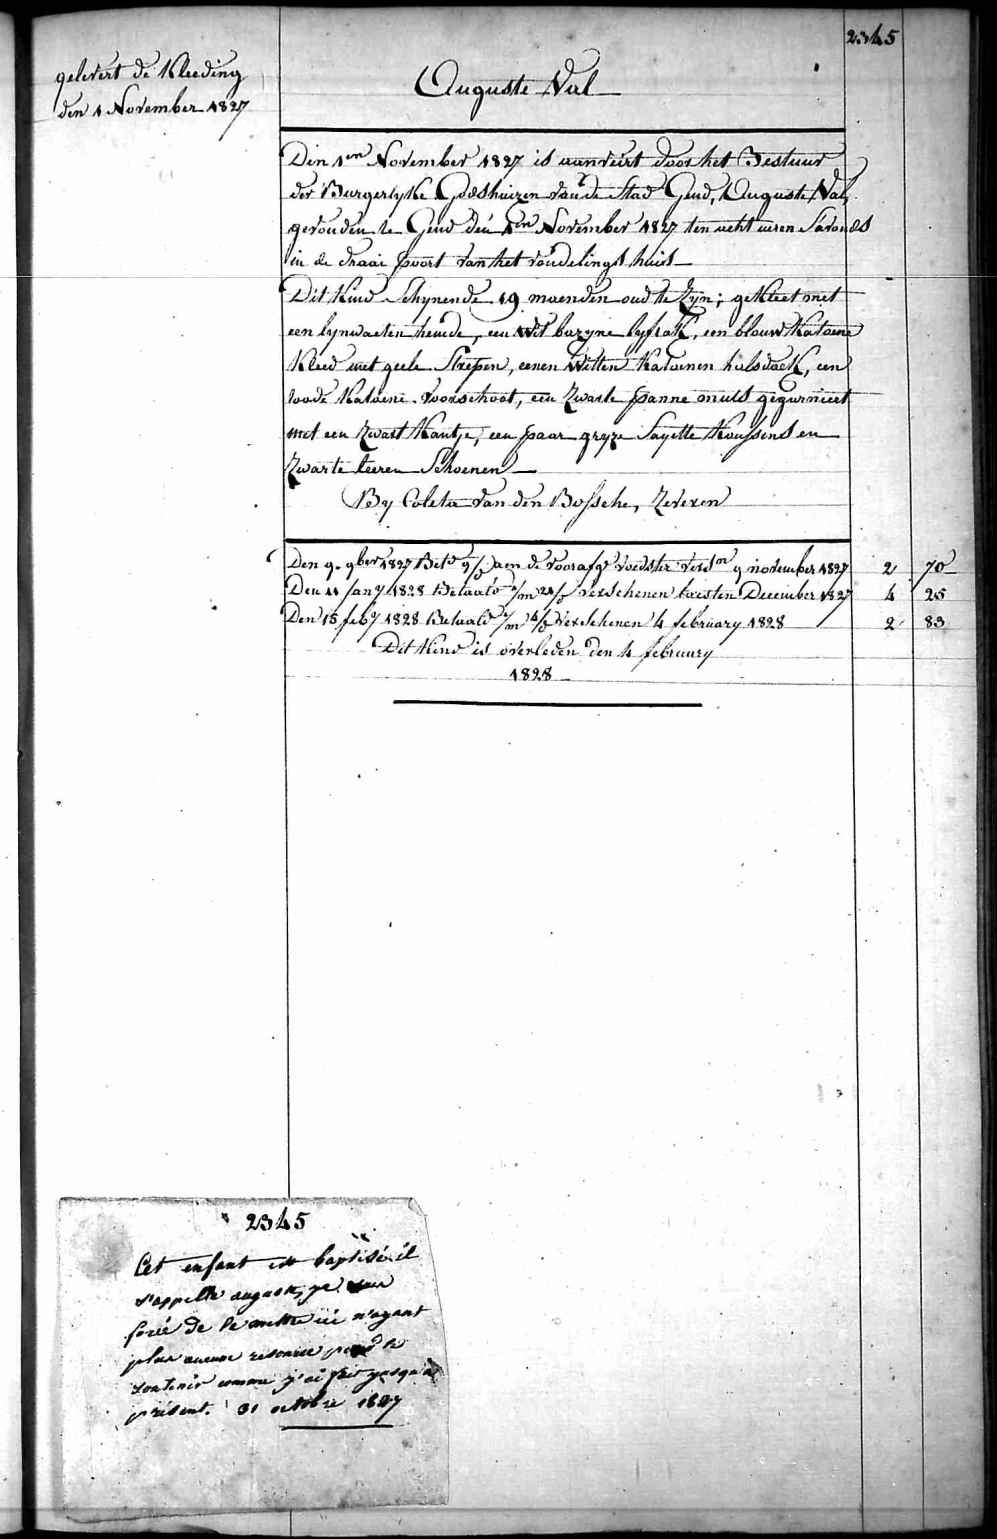 2345
gelevert de Kleeding
den 1 November 1827
Auguste Val
Den 1en November 1827 is aanveirt door het Bestuur
der Burgerlyke Godshuizen van de Stad Gend, Auguste Val,
gevonden te Gend den 1en November 1827 ten acht uren Savonds
in de draai poort van het vondelings huis
Dit Kind Schynende 19 maenden oud te Zyn; gekleet met
een lynwaeten hemde, een Wit bazyne lyfrak, een blauw Katoene
Kleed met geele Strepen, eenen Witten Katoenen halsdoek, een
roode Katoene voorschoot, een Zwarte panne muts gegarnieert
met een Zwart Kantje, een paar gryze Sayette Koussens en
Zwarte leeren Schoenen
By Coleta van den Bossche, Zeveren
Den 9 9ber 1827 Betd aen de voorafge voedster vers 9 november 1827 2 70
Den 11 Jany 1828 Betaald verschenen December 1827 4 25
Den 15 feby 1828 Betaald verschenen 4 february 1828 2 83
Dit Kind is overleden den 4 february
1828
2345
Cet enfant est baptisé il
s'appelle auguste, je suis
forcé de le mettre ici n'ayant
plus aucune resource pour le
soutenir comme j'ai fait jusqu'a
présent. 31 octobre 1827